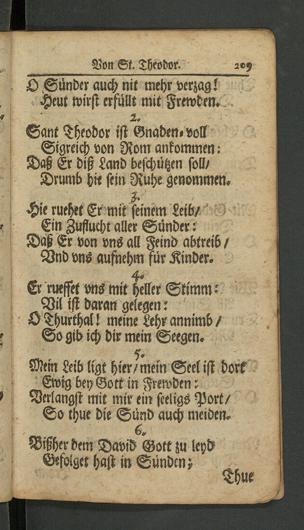 Von St. Theodor. 209
O Sünder auch nit mehr verzag!
Heut wirst erfüllt mit Frewden.
2.
Sant Theodor ist Gnaden-voll
Sigreich von Rom ankommen:
Daß Er diß Land beschützen soll/
Drumb hie sein Ruhe genommen.
3.
Hie ruehet Er mit seinem Leib/
Ein Zuflucht aller Sünder:
Daß Er von vns all Feind abtreib/
Vnd vns aufnehm für Kinder.
4.
Er rueffet vns mit heller Stimm:
Vil ist daran gelegen:
O Thurthal! meine Lehr annimb/
So gib ich dir mein Seegen.
5.
Mein Leib ligt hier/mein Seel ist dort
Ewig bey Gott in Frewden:
Verlangst mit mir ein seeligs Port/
So thue die Sünd auch meiden.
6.
Bißher dem David Gott zu leyd
Gefolget hast in Sünden;
Thue